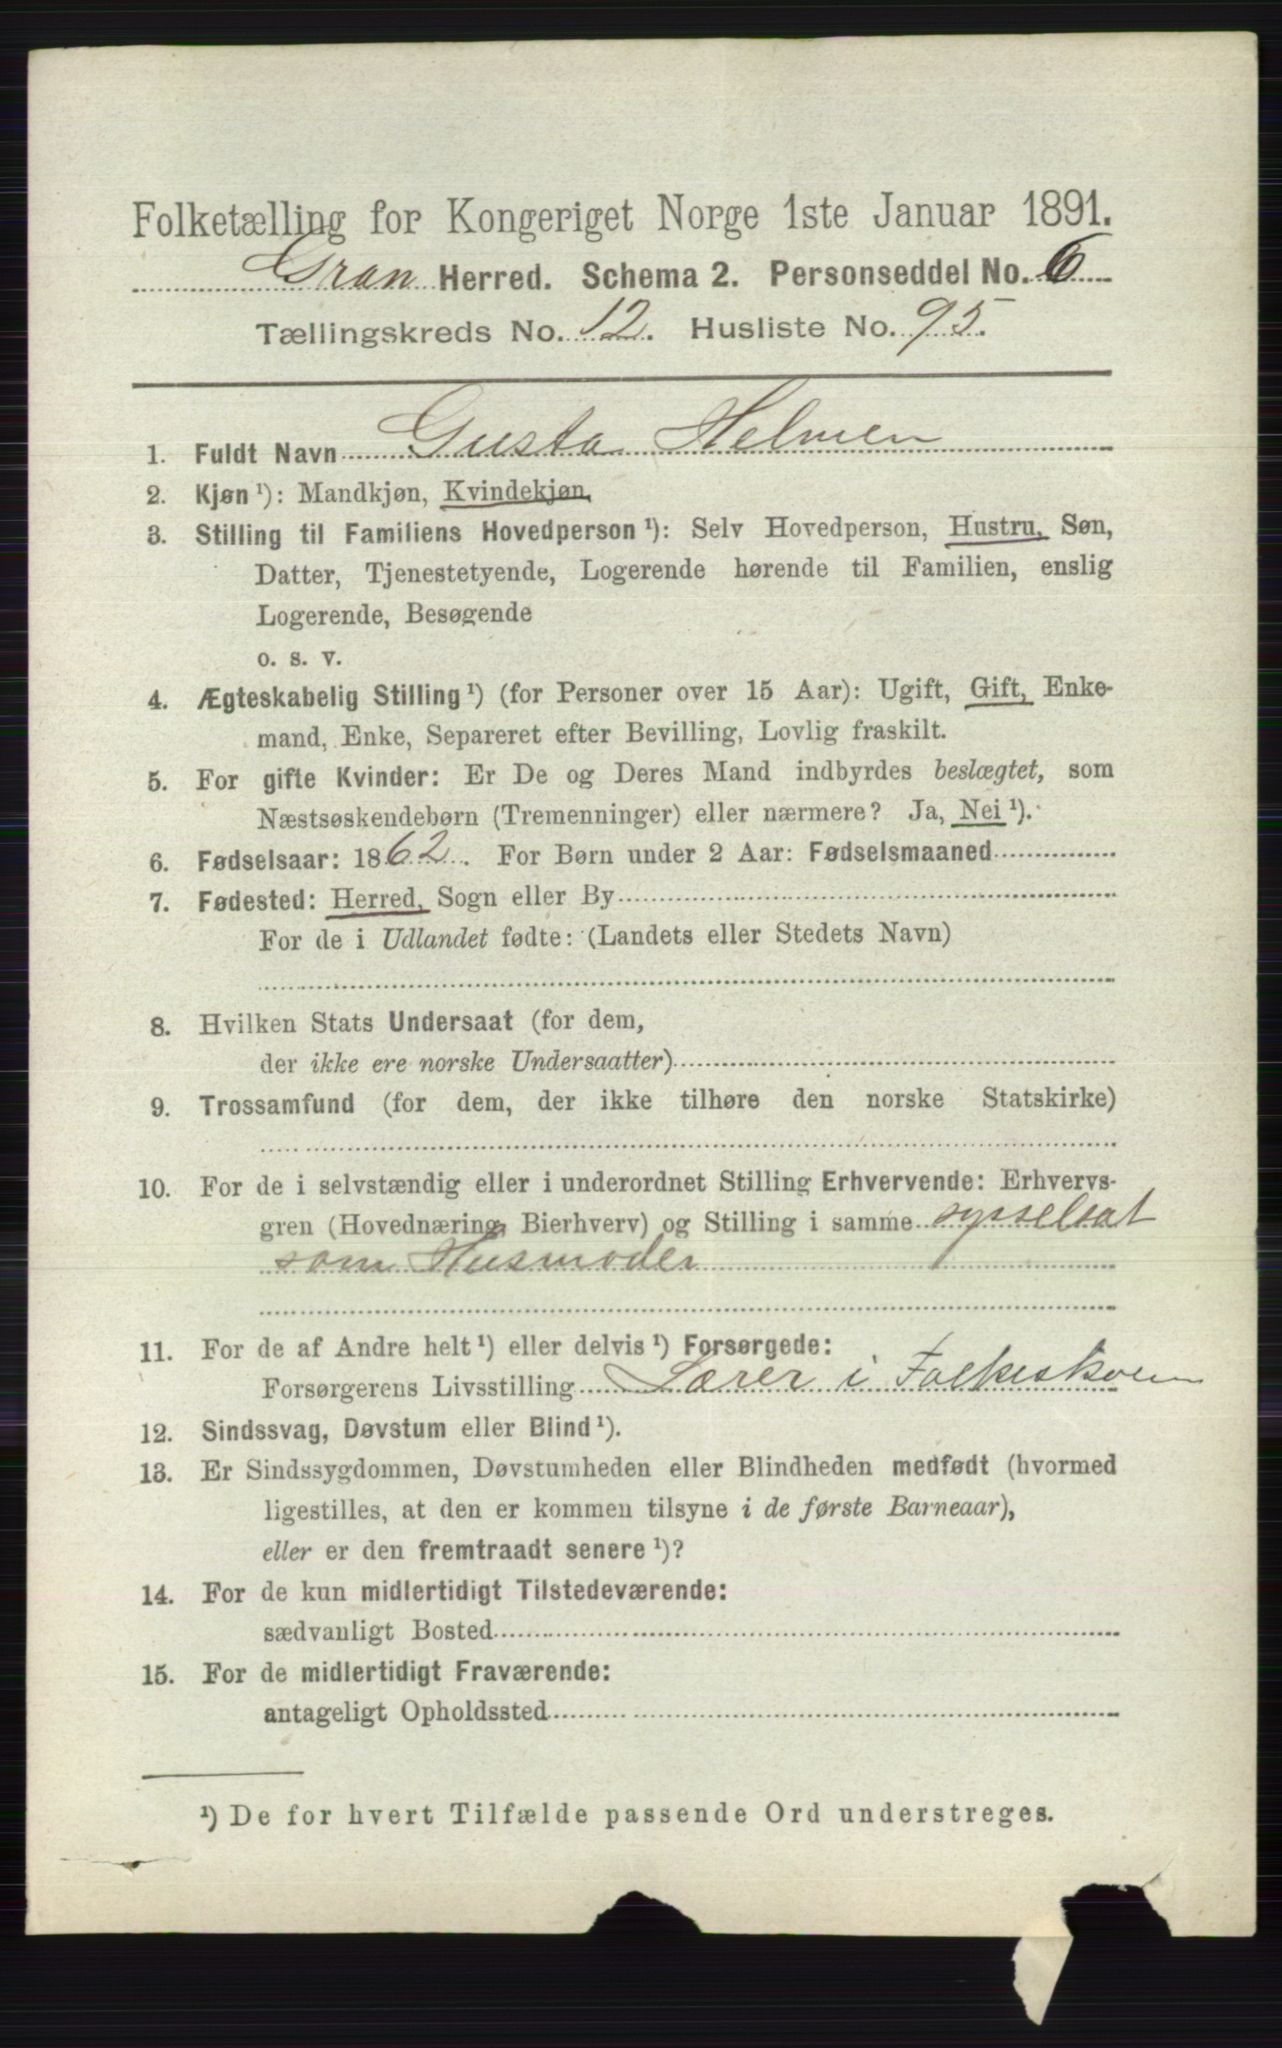 Folketælling for Kongeriget Norge 1ste Januar 1891.
Gran Herred. Schema 2. Personseddel No. 6
Tællingskreds No. 12. Husliste No. 95.
1. Fuldt Navn Gusta Helmen
2. Kjøn ¹): Mandkjøn, Kvindekjøn.
3. Stilling til Familiens Hovedperson ¹): Selv Hovedperson, Hustru, Søn,
Datter, Tjenestetyende, Logerende hørende til Familien, enslig
Logerende, Besøgende
o. s. v.
4. Ægteskabelig Stilling ¹) (for Personer over 15 Aar): Ugift, Gift, Enke-
mand, Enke, Separeret efter Bevilling, Lovlig fraskilt.
5. For gifte Kvinder: Er De og Deres Mand indbyrdes beslægtet, som
Næstsøskendebørn (Tremenninger) eller nærmere? Ja, Nei ¹).
6. Fødselsaar: 1862. For Børn under 2 Aar: Fødselsmaaned
7. Fødested: Herred, Sogn eller By
For de i Udlandet fødte: (Landets eller Stedets Navn)
8. Hvilken Stats Undersaat (for dem,
der ikke ere norske Undersaatter)
9. Trossamfund (for dem, der ikke tilhøre den norske Statskirke)
10. For de i selvstændig eller i underordnet Stilling Erhvervende: Erhvervs-
gren (Hovednæring, Bierhverv) og Stilling i samme sysselsat
som Husmoder
11. For de af Andre helt ¹) eller delvis ¹) Forsørgede:
Forsørgerens Livsstilling Lærer i Folkeskolen
12. Sindssvag, Døvstum eller Blind ¹).
13. Er Sindssygdommen, Døvstumheden eller Blindheden medfødt (hvormed
ligestilles, at den er kommen tilsyne i de første Barneaar),
eller er den fremtraadt senere ¹)?
14. For de kun midlertidigt Tilstedeværende:
sædvanligt Bosted
15. For de midlertidigt Fraværende:
antageligt Opholdssted
¹) De for hvert Tilfælde passende Ord understreges.